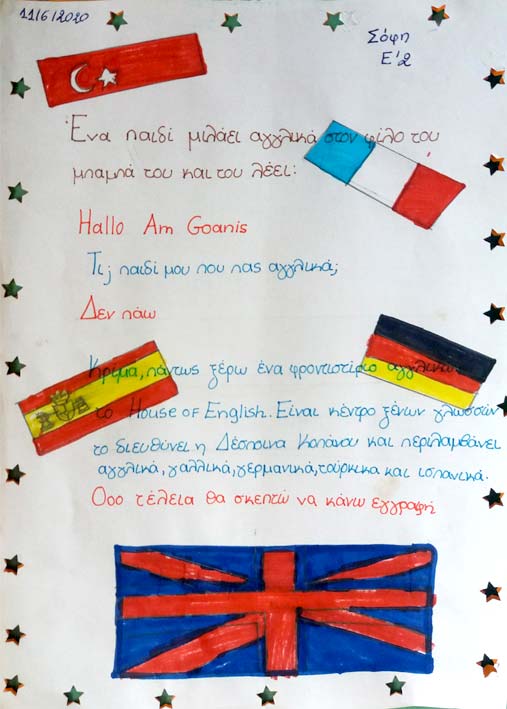 11/6/2020
Σόφη
Ε'2
Ένα παιδί μιλάει αγγλικά στον φίλο του
μπαμπά του και του λέει:
Hallo Am Goanis
Τι; παιδί μου που πας αγγλικά;
Δεν πάω
Κρίμα, πάντως ξέρω ένα φροντιστίριο αγγλικών
το House of English. Είναι κέντρο ξένων γλωσσών
το διευθύνει η Δέσποινα Κοπάνου και περιλαμβάνει
αγγλικά, γαλλικά, γερμανικά, τούρκικα και ισπανικά.
Οοο τέλεια θα σκεπτώ να κάνω εγγραφή